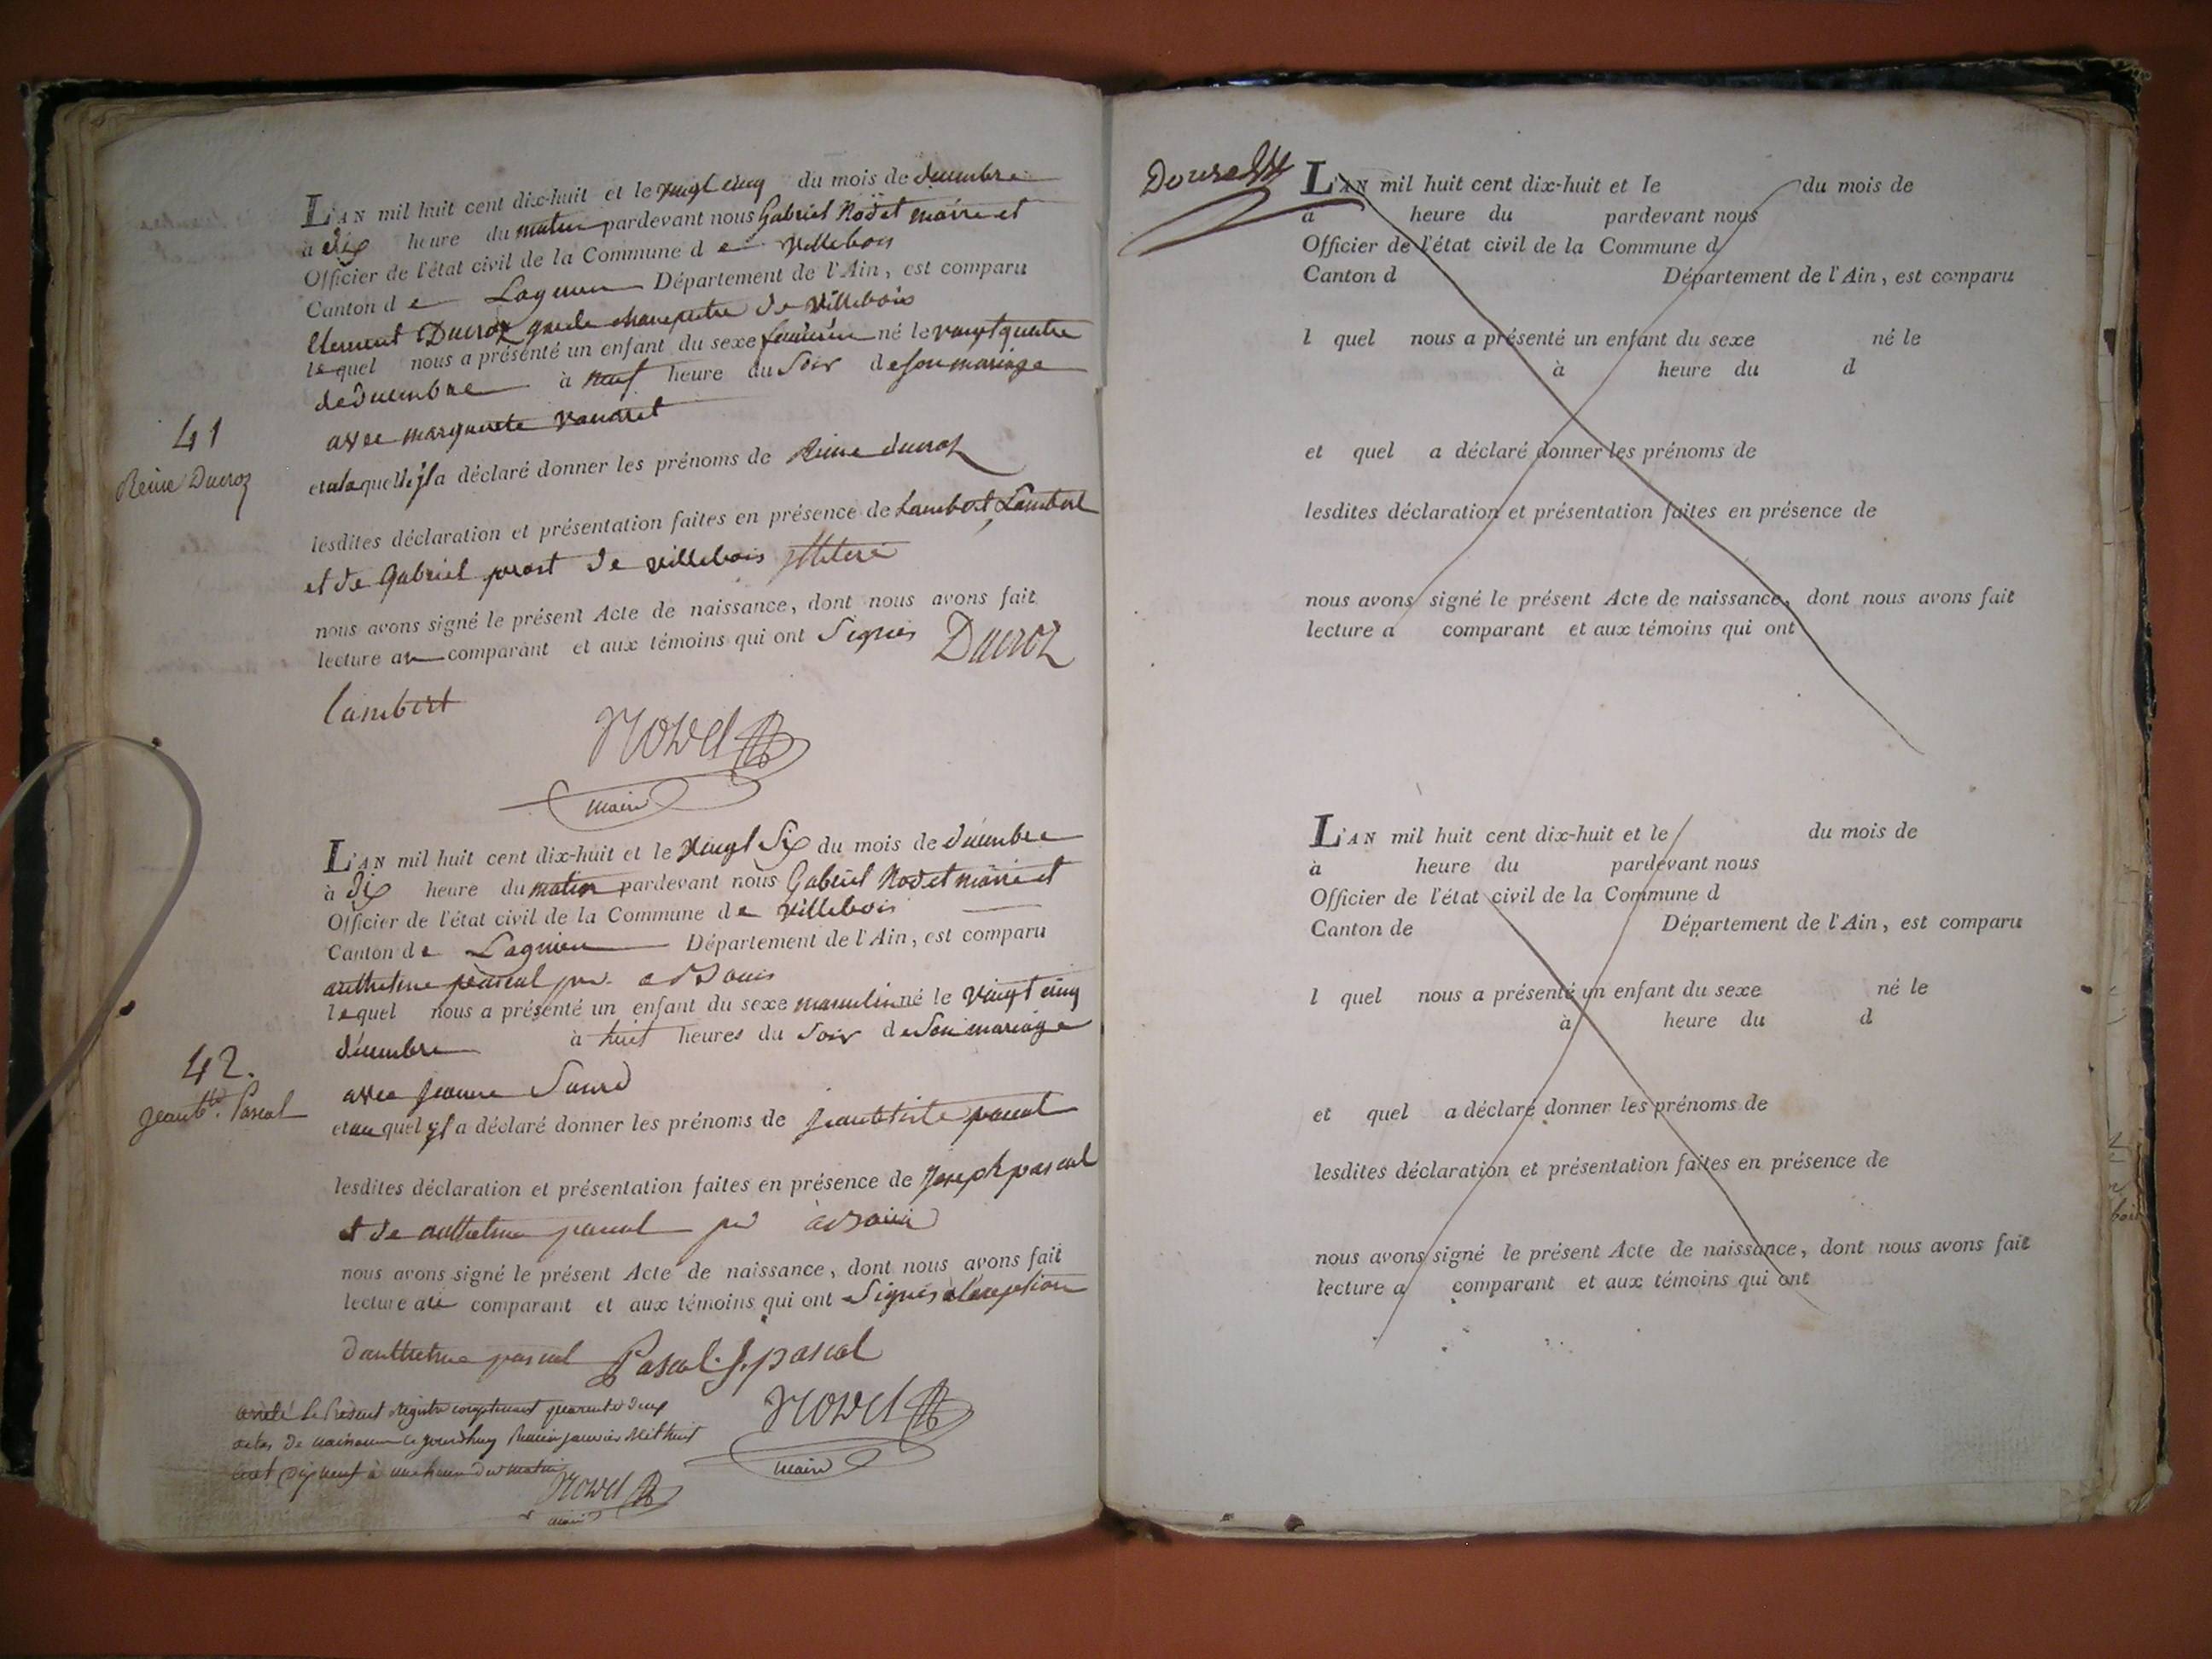 L'AN mil huit cent dix-huit et le vingt cinq du mois de décembre
à dix heure du matin pardevant nous Gabriel Nodet maire et
Officier de l'état civil de la Commune de villebois
Canton de Lagnieu Département de l'Ain, est comparu
Clement Ducroz garde champetre de villebois
lequel nous a présenté un enfant du sexe feminin né le vingt quatre
de decembre à neuf heure du Soir de son mariage
41
avec marguerite
Reine Ducroz
et a laquelle il a déclaré donner les prénoms de Reine ducroz
lesdites déclaration et présentation faites en présence de Lambert Lambert
et de Gabriel prost de villebois
nous avons signé le présent Acte de naissance, dont nous avons fait
lecture au comparant et aux témoins qui ont Signés
Ducroz
Lambert
Nodet
maire
L'AN mil huit cent dix-huit et le vingt Six du mois de décembre
à dix heure du matin pardevant nous Gabriel Nodet maire et
Officier de l'état civil de la Commune de villebois
Canton de Lagnieu Département de l'Ain, est comparu
anthelme pascal
lequel nous a présenté un enfant du sexe masculin né le vingt cinq
décembre à huit heures du Soir de Son mariage
42.
avec jeanne
Jean bte. Pascal
et au quel il a déclaré donner les prénoms de jean batiste pascal
lesdites déclaration et présentation faites en présence de joseph pascal
et de anthelme pascal
nous avons signé le présent Acte de naissance, dont nous avons fait
lecture au comparant et aux témoins qui ont Signés à l'exception
d'anthelme pascal Pascal. J. pascal
Nodet
maire
arrêté le Présent Registre comptenant quarante deux
actes de naissance ce jourdhuy Premier janvier Mil huit
cent dix neuf à une heure du matin
Nodet
maire
L'AN mil huit cent dix-huit et le du mois de
à heure du pardevant nous
Officier de l'état civil de la Commune d
Canton d Département de l'Ain, est comparu
l quel nous a présenté un enfant du sexe né le
à heure du d
et quel a déclaré donner les prénoms de
lesdites déclaration et présentation faites en présence de
nous avons signé le présent Acte de naissance, dont nous avons fait
lecture a comparant et aux témoins qui ont
L'AN mil huit cent dix-huit et le du mois de
à heure du pardevant nous
Officier de l'état civil de la Commune d
Canton de Département de l'Ain, est comparu
l quel nous a présenté un enfant du sexe né le
à heure du d
et quel a déclaré donner les prénoms de
lesdites déclaration et présentation faites en présence de
nous avons signé le présent Acte de naissance, dont nous avons fait
lecture a comparant et aux témoins qui ont